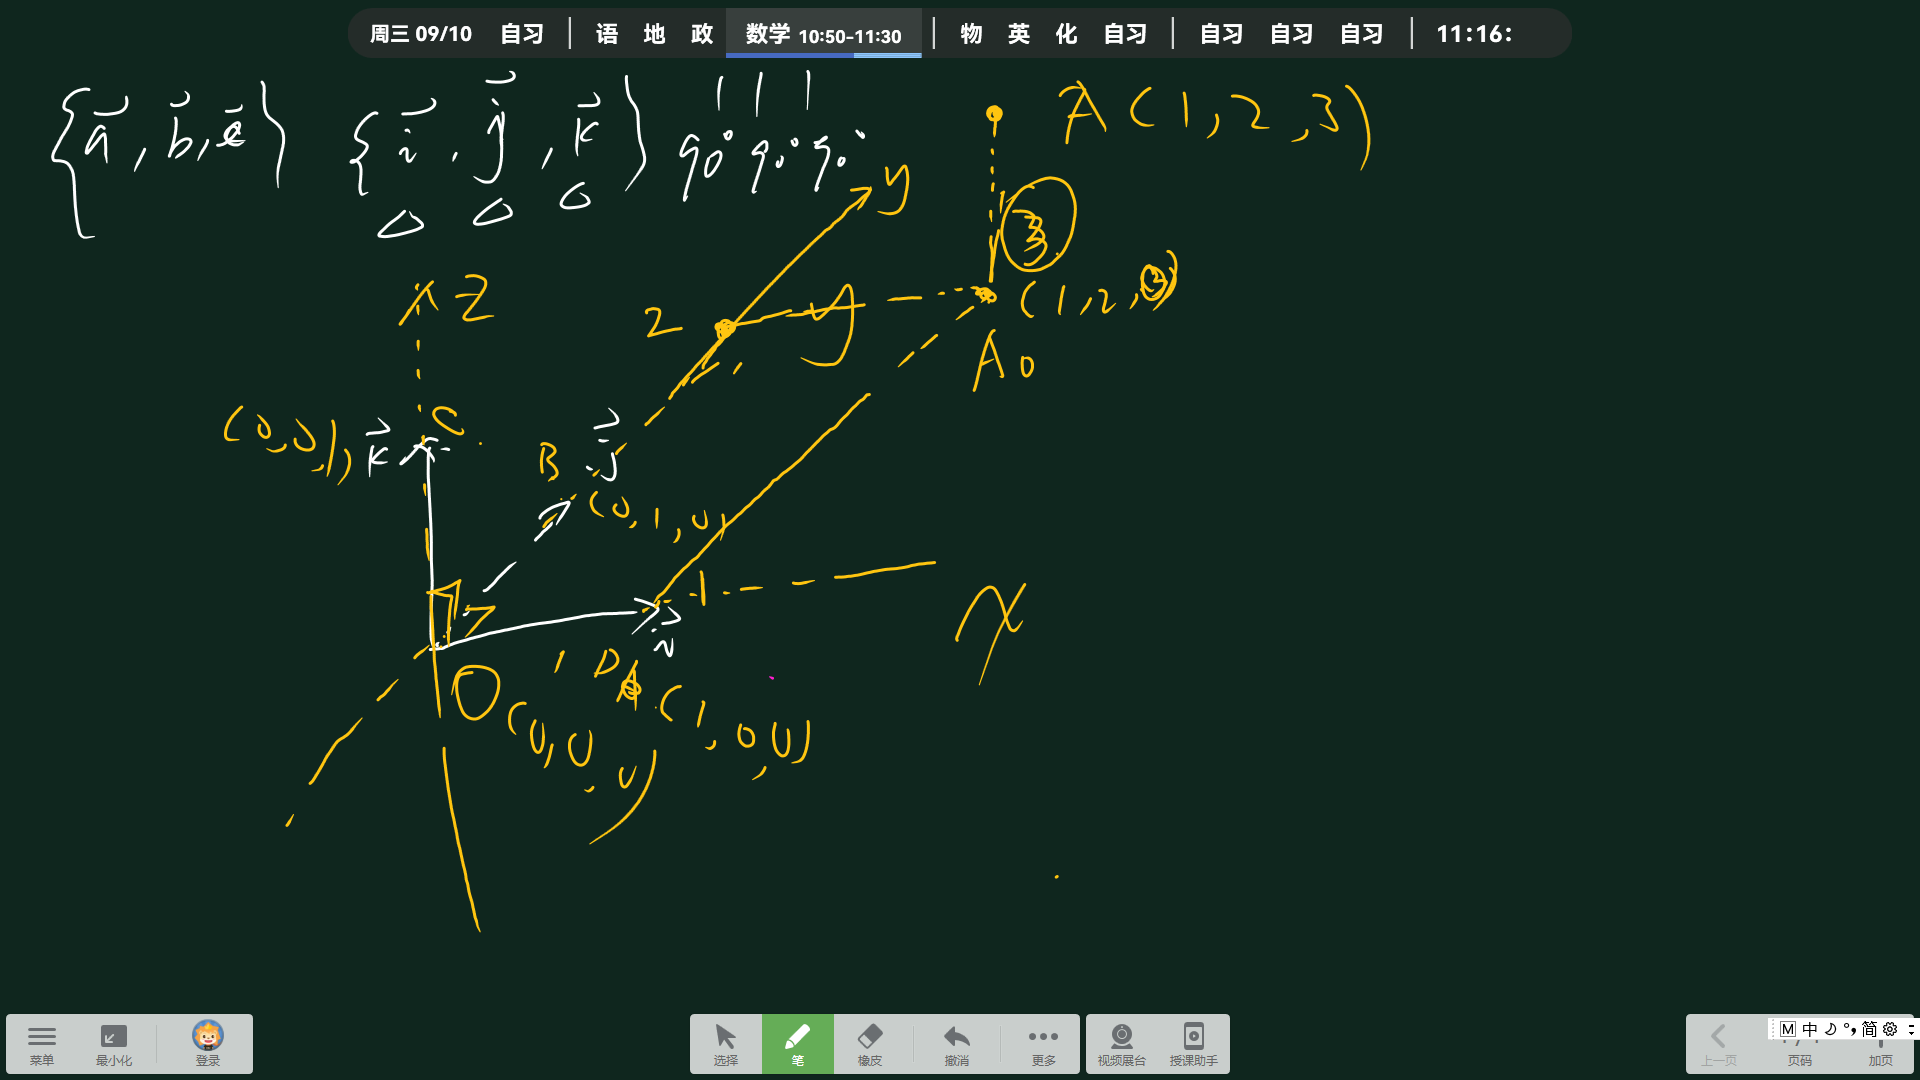 周三 09/10 自习 | 语 地 政 数学 10:50-11:30 | 物 英 化 自习 | 自习 自习 自习 | 11:16:
{a, b, c} {i, j, k} 1 1 1
90° 90° 90°
A (1, 2, 3)
y
3
z
2
y
(1, 2,
A0
(0, 0, 1) k C
B j
(0, 1, 0)
1
x
i
1 D A (1, 0, 0)
O (0, 0, 0)
菜单 最小化 登录 选择 笔 橡皮 撤消 更多 视频展台 授课助手 上一页 页码 加页
M 中 简